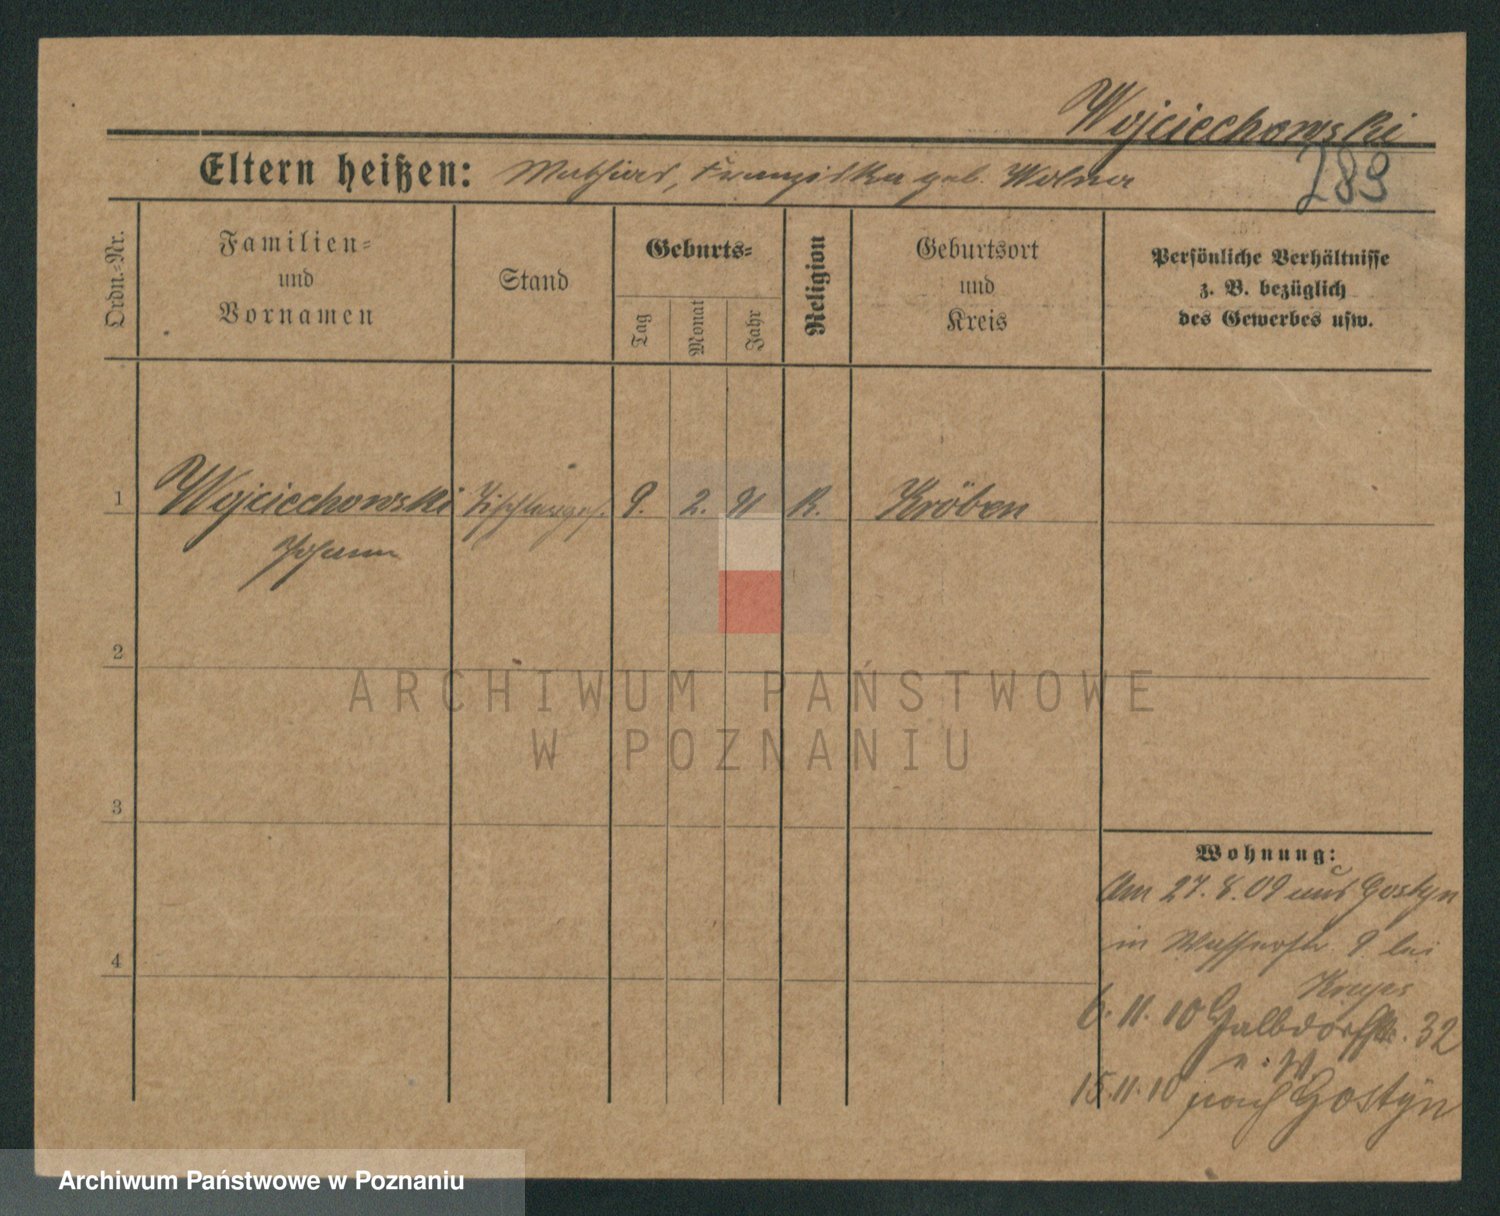 Wojciechowski
Eltern heißen: Mathias, Franziska geb. Wolna
289
Ordn.-Nr.
Familien-
und
Vornamen
Stand
Geburts-
Tag
Monat
Jahr
Religion
Geburtsort
und
Kreis
Persönliche Verhältnisse
z. B. bezüglich
des Gewerbes usw.
1 Wojciechowski Tischlerges. 9. 2. 91 K. Kröben
Johann
2
ARCHIWUM PAŃSTWOWE
W POZNANIU
3
Wohnung:
Am 27.8.09 aus Gostyn
in Wasserstr. 9 bei
4
6.11.10 32
15.11.10 nach Gostyn
Archiwum Państwowe w Poznaniu